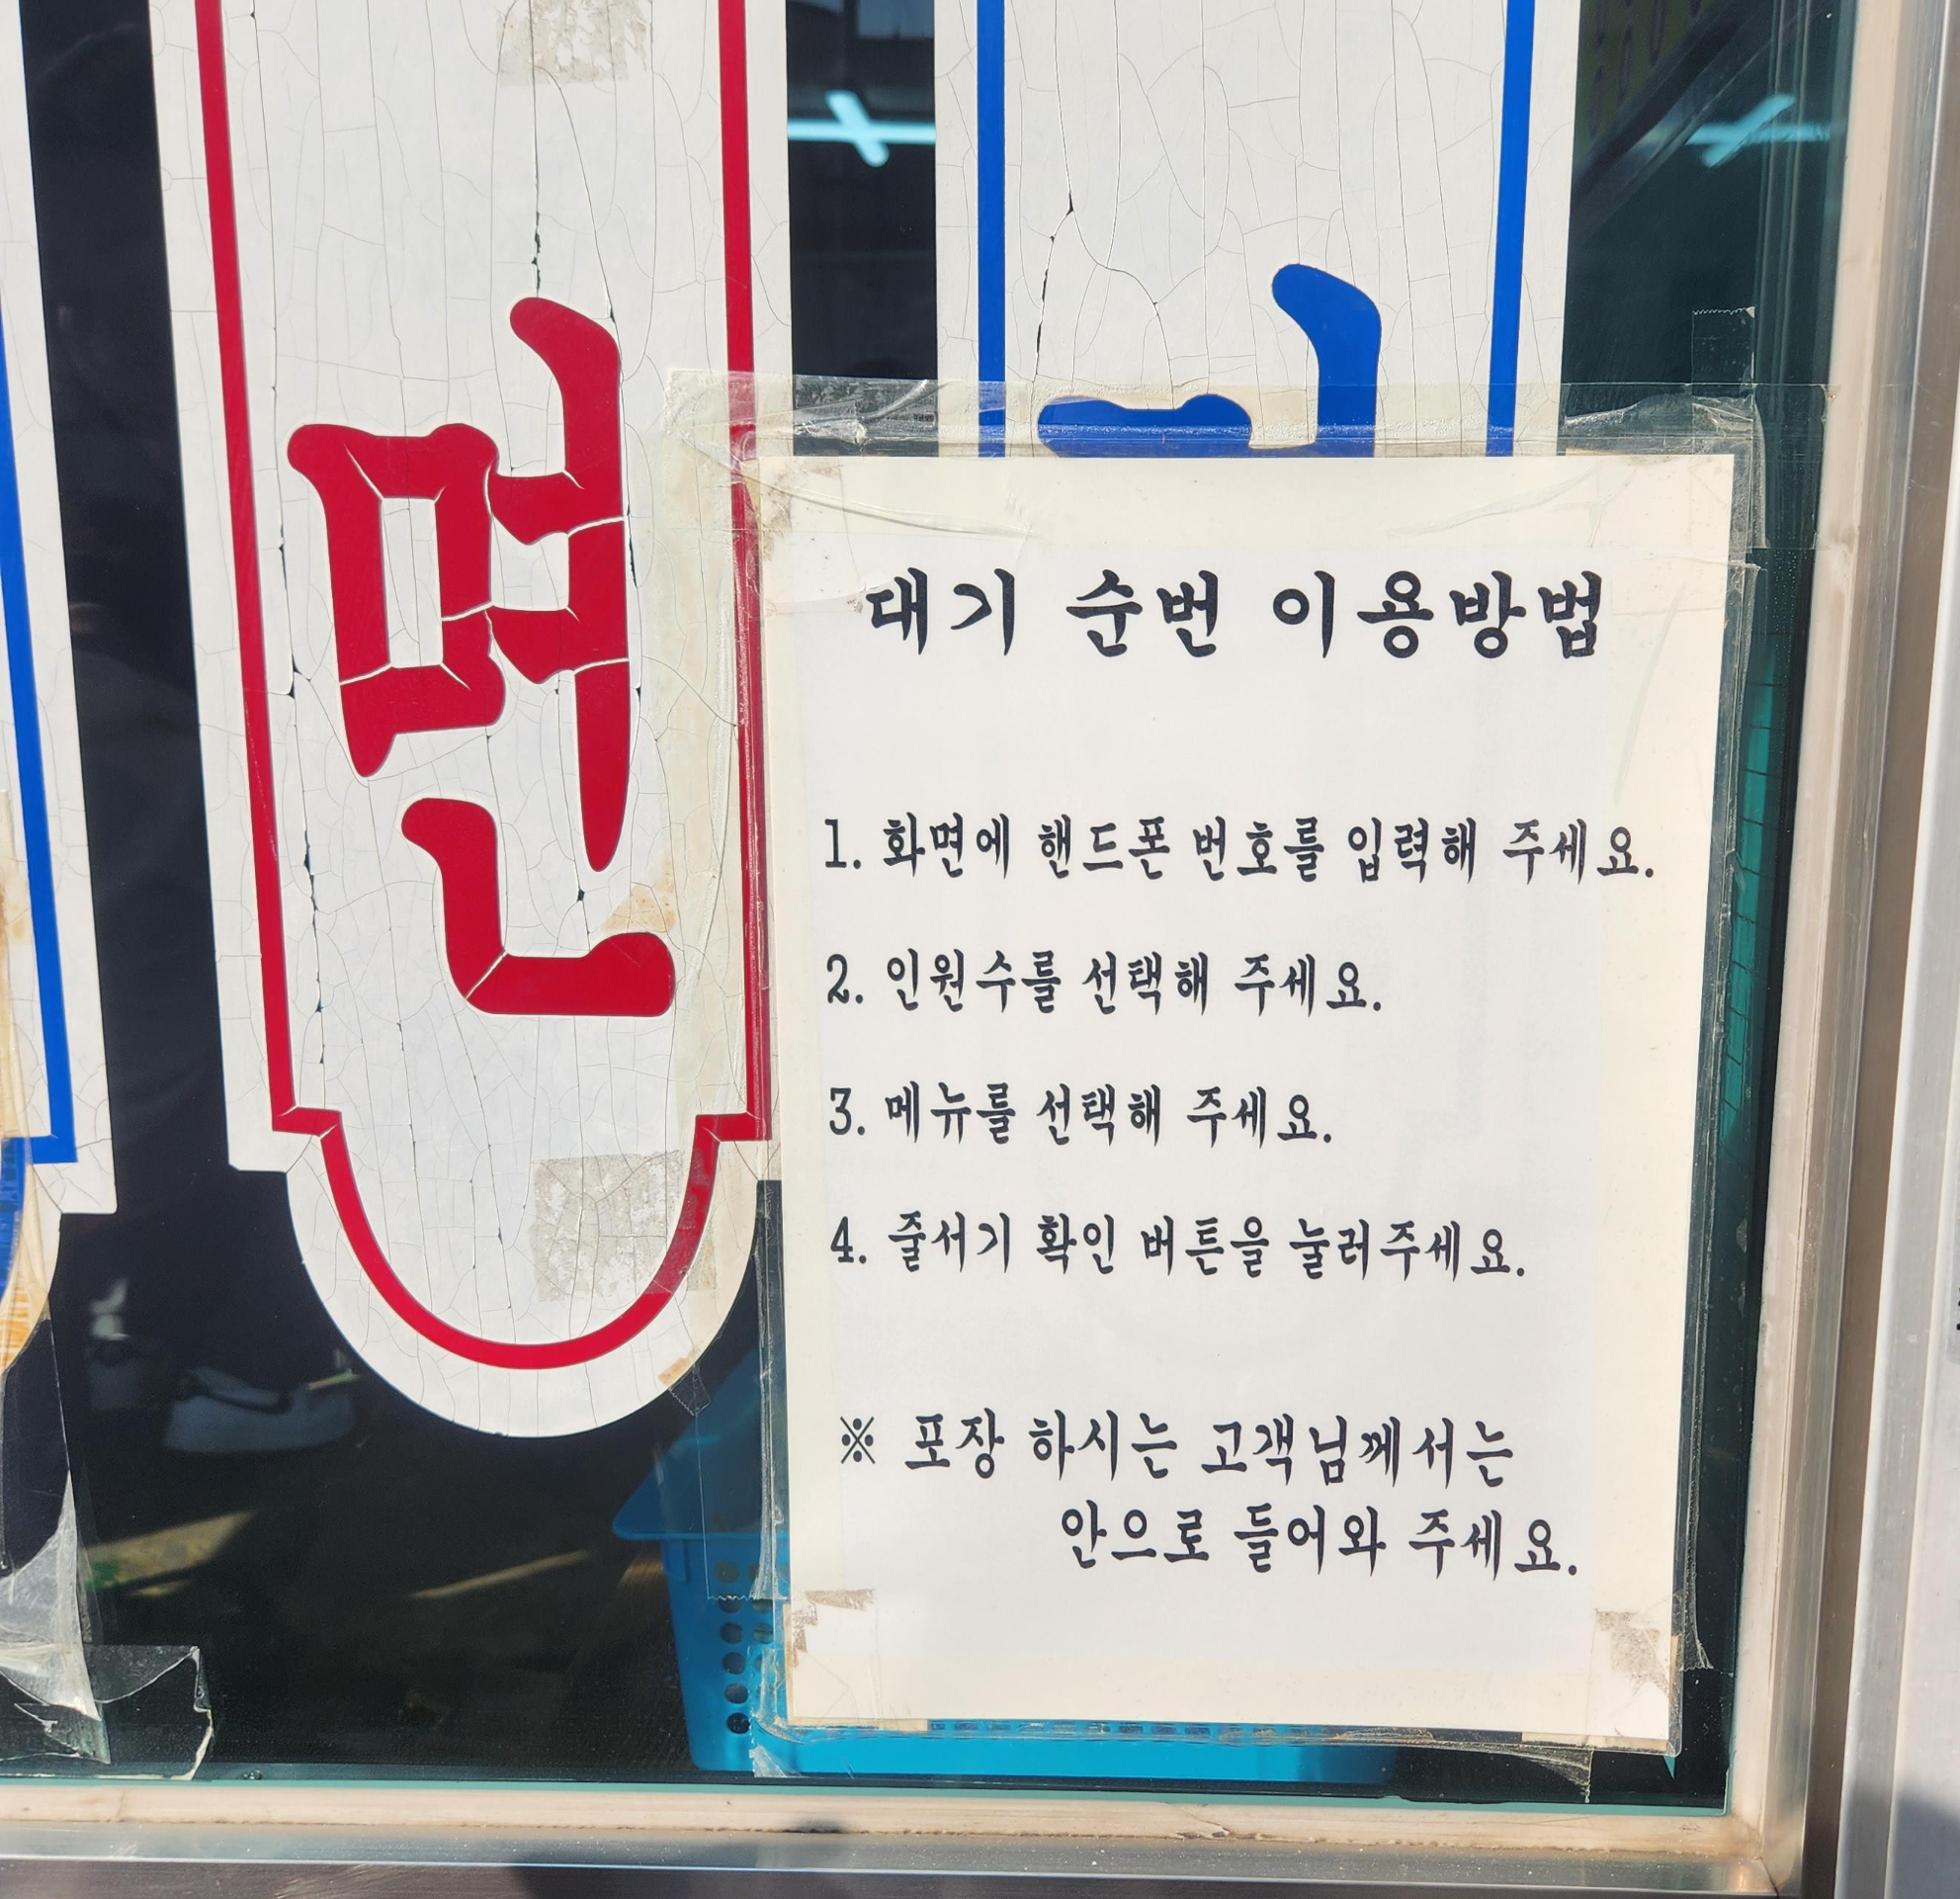 면
대기 순번 이용방법
1. 화면에 핸드폰 번호를 입력해 주세요.
2. 인원수를 선택해 주세요.
3. 메뉴를 선택해 주세요.
4. 줄서기 확인 버튼을 눌러주세요.
※ 포장 하시는 고객님께서는
안으로 들어와 주세요.